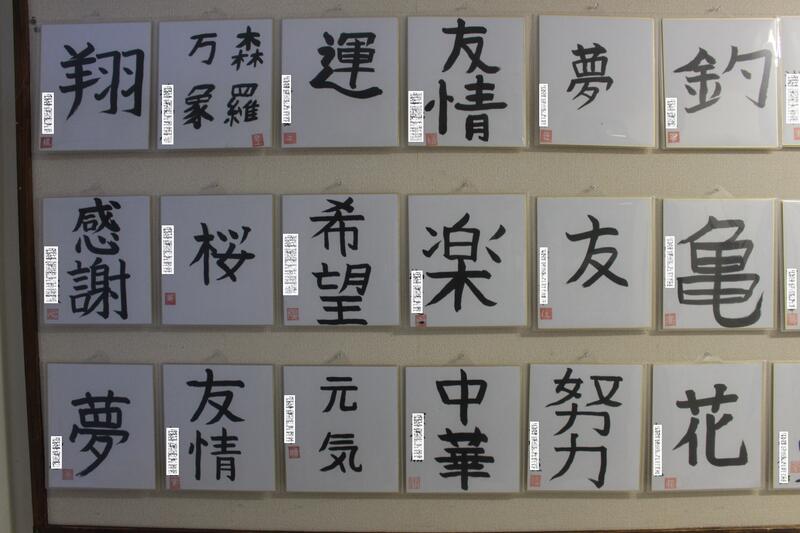 翔
森羅
万象
運
友情
夢
釣
感謝
桜
希望
楽
友
亀
夢
友情
元気
中華
努力
花